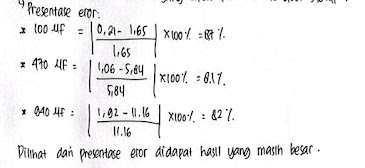 4) Presentase eror:
* 100 µF = | 0,21 - 1,65 / 1,65 | x100% = 87 %
* 470 µF = | 1,06 - 5,84 / 5,84 | x100% = 81%
* 940 µF = | 1,92 - 11.16 / 11.16 | x100% = 82%
Dilihat dari presentase eror didapat hasil yang masih besar.